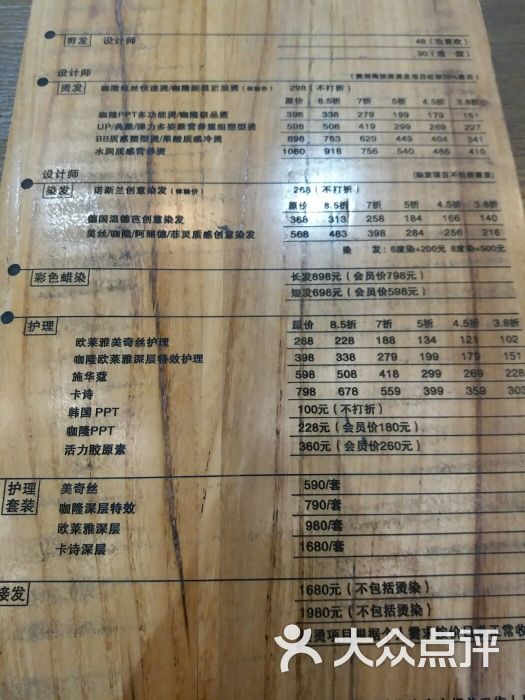 剪发 设计师 48（洗剪吹）
30（造 型）
设计师
烫发 咖隆炫丝快速烫/咖隆新晨沱浪烫（体验价） 298（不打折）
原价 8.5折 7折 5折 4.5折 3.8折
咖隆PPT多功能烫/咖隆极品烫 398 338 279 199 179 151
UP/典雅/弹力多姿雅营养重组塑型烫 598 508 419 299 269 227
BB质感塑型烫/果酸质感冷烫 898 763 629 449 404 341
水润质感营养烫 1080 918 756 540 486 410
设计师 （染发项目不包括剪发）
染发 诺新兰创意染发（体验价） 268（不打折）
原价 8.5折 7折 5折 4.5折 3.8折
德国温德芭创意染发 368 313 258 184 166 140
美丝/咖隆/阿丽德/菲灵质感创意染发 568 483 398 284 256 216
染 发：6度染+200元 8度染+500元
彩色蜡染 长发898元（会员价798元）
短发698元（会员价598元）
护理 原价 8.5折 7折 5折 4.5折 3.8折
欧莱雅美奇丝护理 268 228 188 134 121 102
咖隆欧莱雅深层特效护理 398 338 279 199 179 151
施华蔻 598 508 418 299 269 228
卡诗 798 678 559 399 359 303
韩国PPT 100元（不打折）
咖隆PPT 228元（会员价180元）
活力胶原素 360元（会员价260元）
护理套装 美奇丝 590/套
咖隆深层特效 790/套
欧莱雅深层 980/套
卡诗深层 1680/套
接发 1680元（不包括烫染）
1980元（不包括烫染）
大众点评